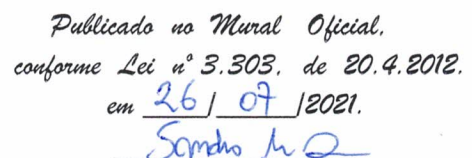 Publicado no Mural Oficial,
conforme Lei nº 3.303, de 20.4.2012.
em 26 / 07 /2021.